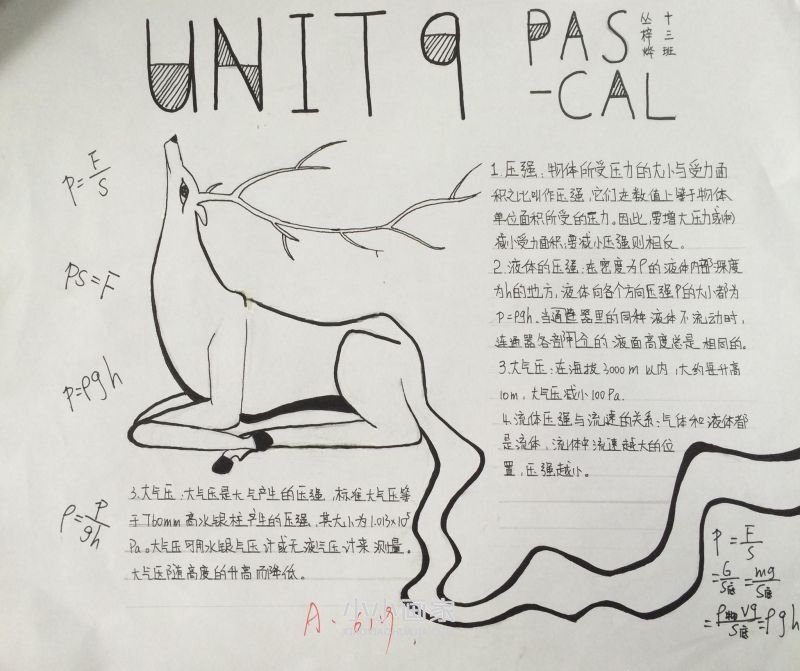 UNIT 9
PAS
-CAL
十三班
丛梓烨
p=F/S
PS=F
p=ρgh
ρ=P/gh
1.压强:物体所受压力的大小与受力面
积之比叫作压强,它们在数值上等于物体
单位面积所受的压力。因此,要增大压力或(和)
减小受力面积;要减小压强则相反。
2.液体的压强:在密度为ρ的液体内部深度
为h的地方,液体向各个方向压强P的大小都为
P=ρgh。当连通器里的同种液体不流动时,
连通器各部开口的液面高度总是相同的。
3.大气压:在海拔3000m以内,大约每升高
10m,大气压减小100Pa.
4.流体压强与流速的关系:气体和液体都
是流体,流体中流速越大的位
置,压强越小。
3.大气压:大气压是大气产生的压强,标准大气压等
于760mm高水银柱产生的压强,其大小为1.013×10⁵
Pa。大气压可用水银气压计或无液气压计来测量。
大气压随高度的升高而降低。
P=F/S
=G/S底=mg/S底
=ρ物Vg/S底=ρgh
A. 6.19.
小小画家